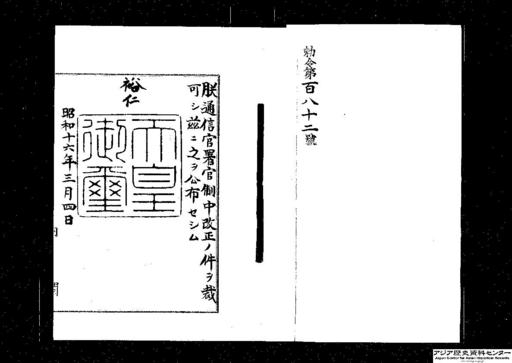 勅令第百八十二號
朕通信官署官制中改正ノ件ヲ裁
可シ茲ニ之ヲ公布セシム
裕仁
天皇御璽
昭和十六年三月四日
アジア歴史資料センター
Japan Center for Asian Historical Records